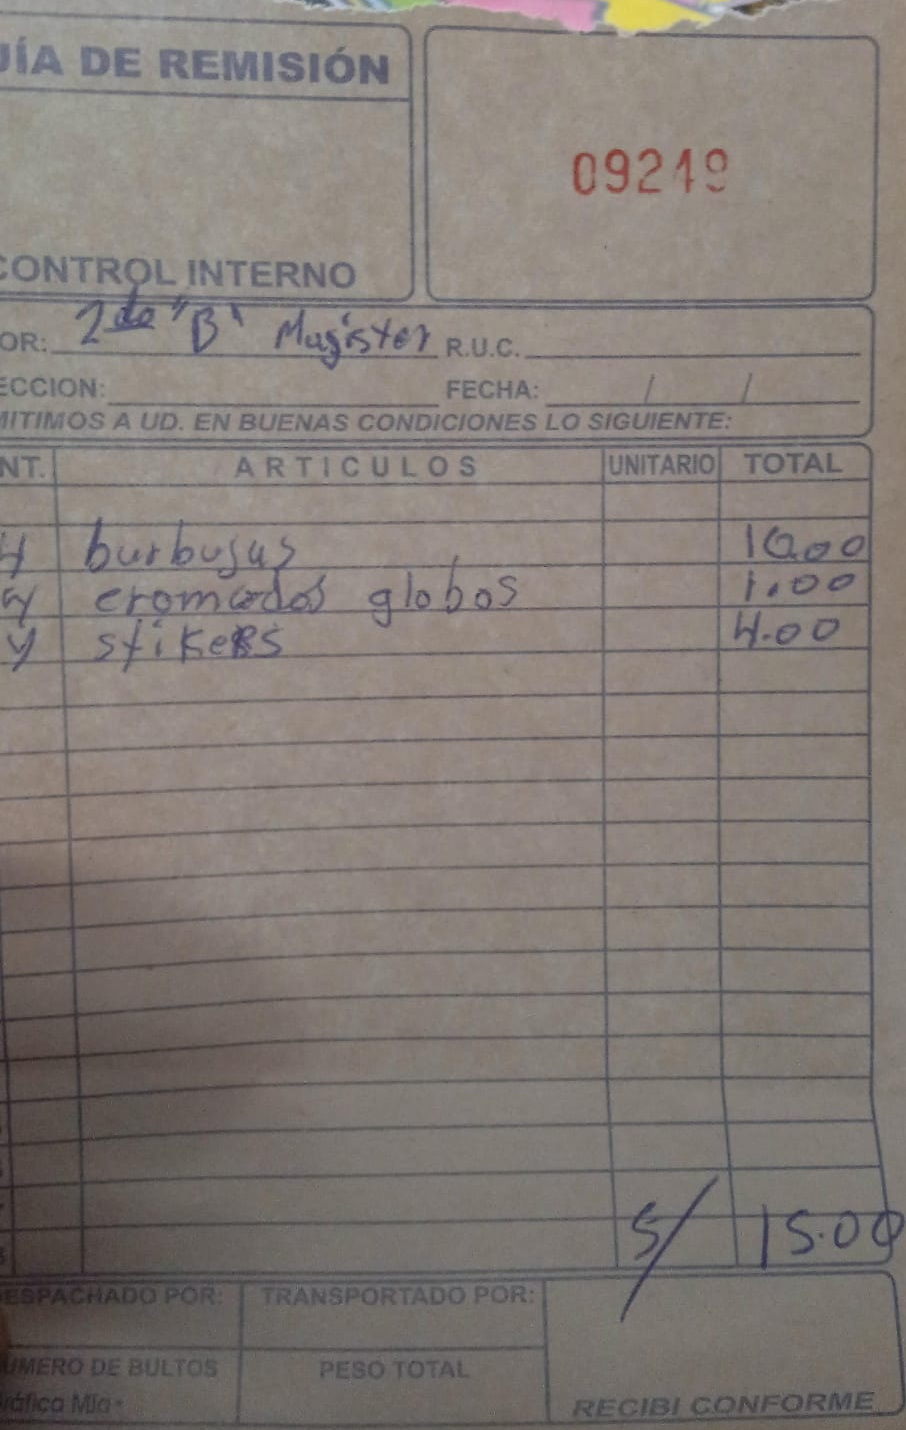 UÍA DE REMISIÓN
09249
CONTROL INTERNO
OR: 2do "B" Magister R.U.C.
ECCION: FECHA: / /
MITIMOS A UD. EN BUENAS CONDICIONES LO SIGUIENTE:
NT. ARTICULOS UNITARIO TOTAL
4 burbujas 10.00
4 cromados globos 1.00
4 stikers 4.00
S/ 15.00
ESPACHADO POR: TRANSPORTADO POR:
UMERO DE BULTOS PESO TOTAL
ráfica Mia RECIBI CONFORME